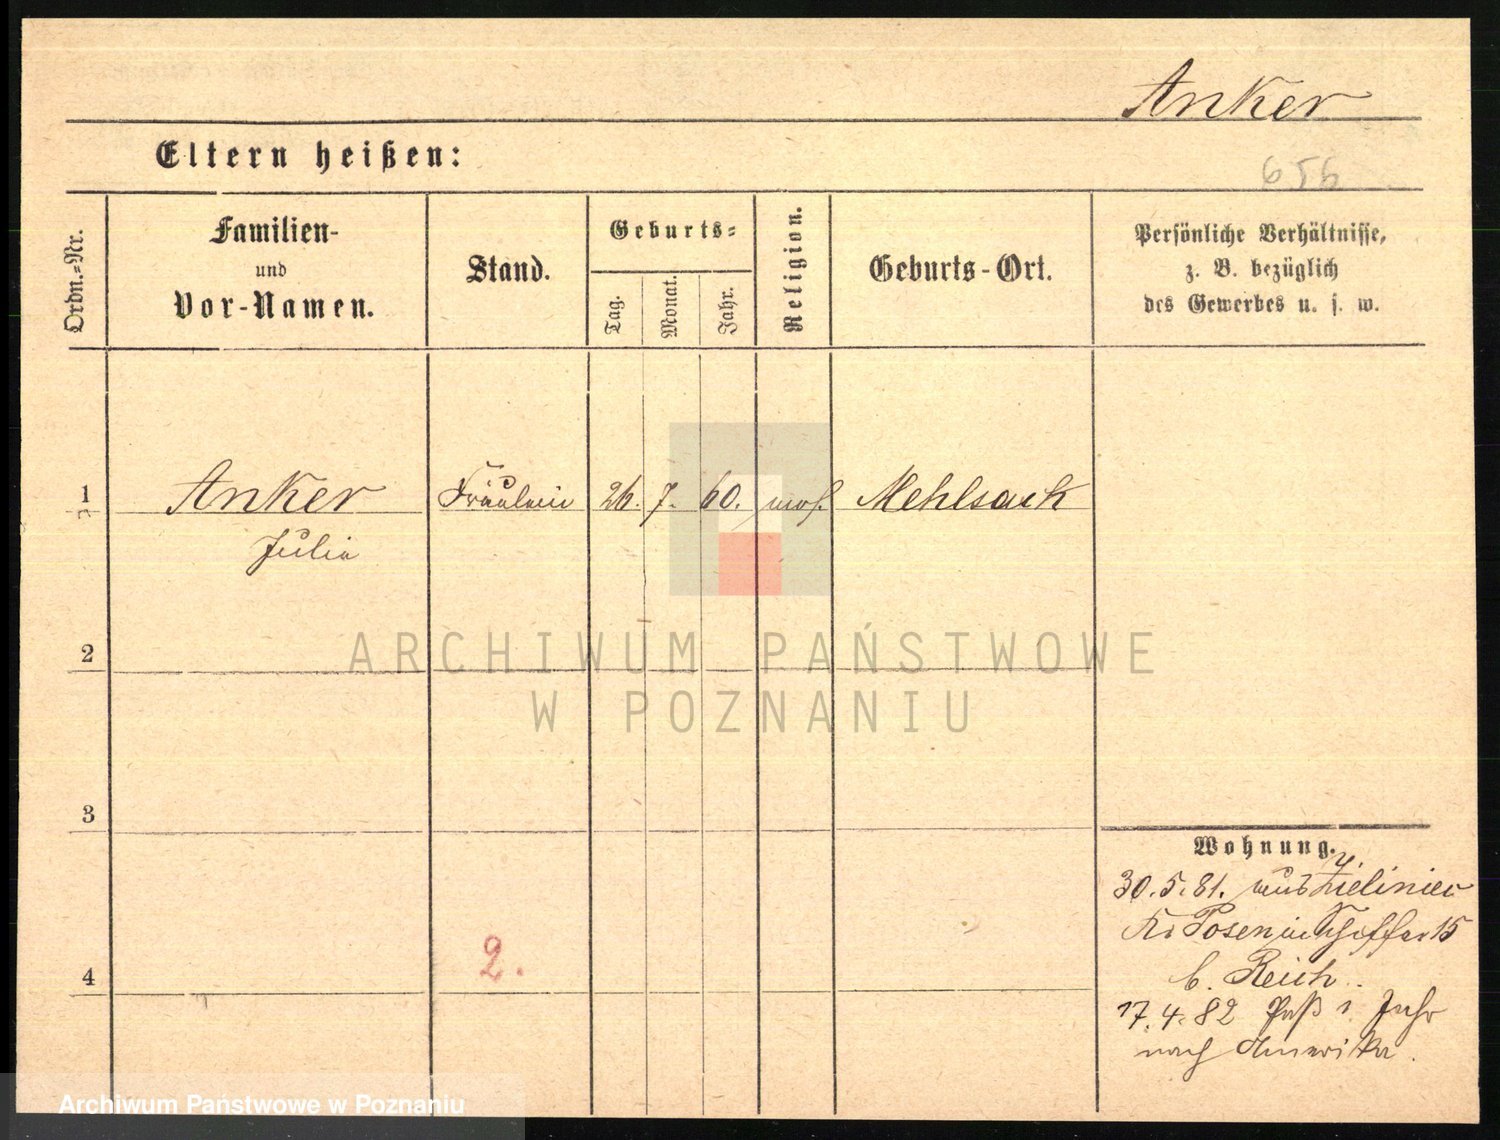 Anker
Eltern heißen:
656
Ordn.=Nr.
Familien-
und
Vor-Namen.
Stand.
Geburts=
Tag.
Monat.
Jahr.
Religion.
Geburts-Ort.
Persönliche Verhältnisse,
z. B. bezüglich
des Gewerbes u. s. w.
1
Anker
Julie
Fräulein
26. 7. 60.
mos.
Mehlsack
2
ARCHIWUM PAŃSTWOWE
W POZNANIU
3
Wohnung.
30.5.81. aus
Kr Posen in 15
b. Reich.
4
2.
17.4.82 Paß 1 Jahr
nach Amerika.
Archiwum Państwowe w Poznaniu